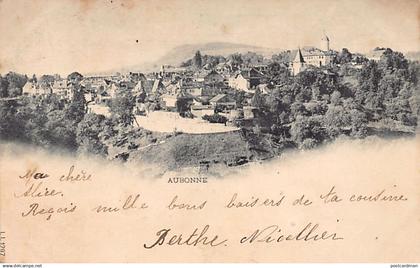 AUBONNE
Ma chère
Alice.
Reçois mille bons baisers de ta cousine
Berthe. Nicollier
postcardman.com